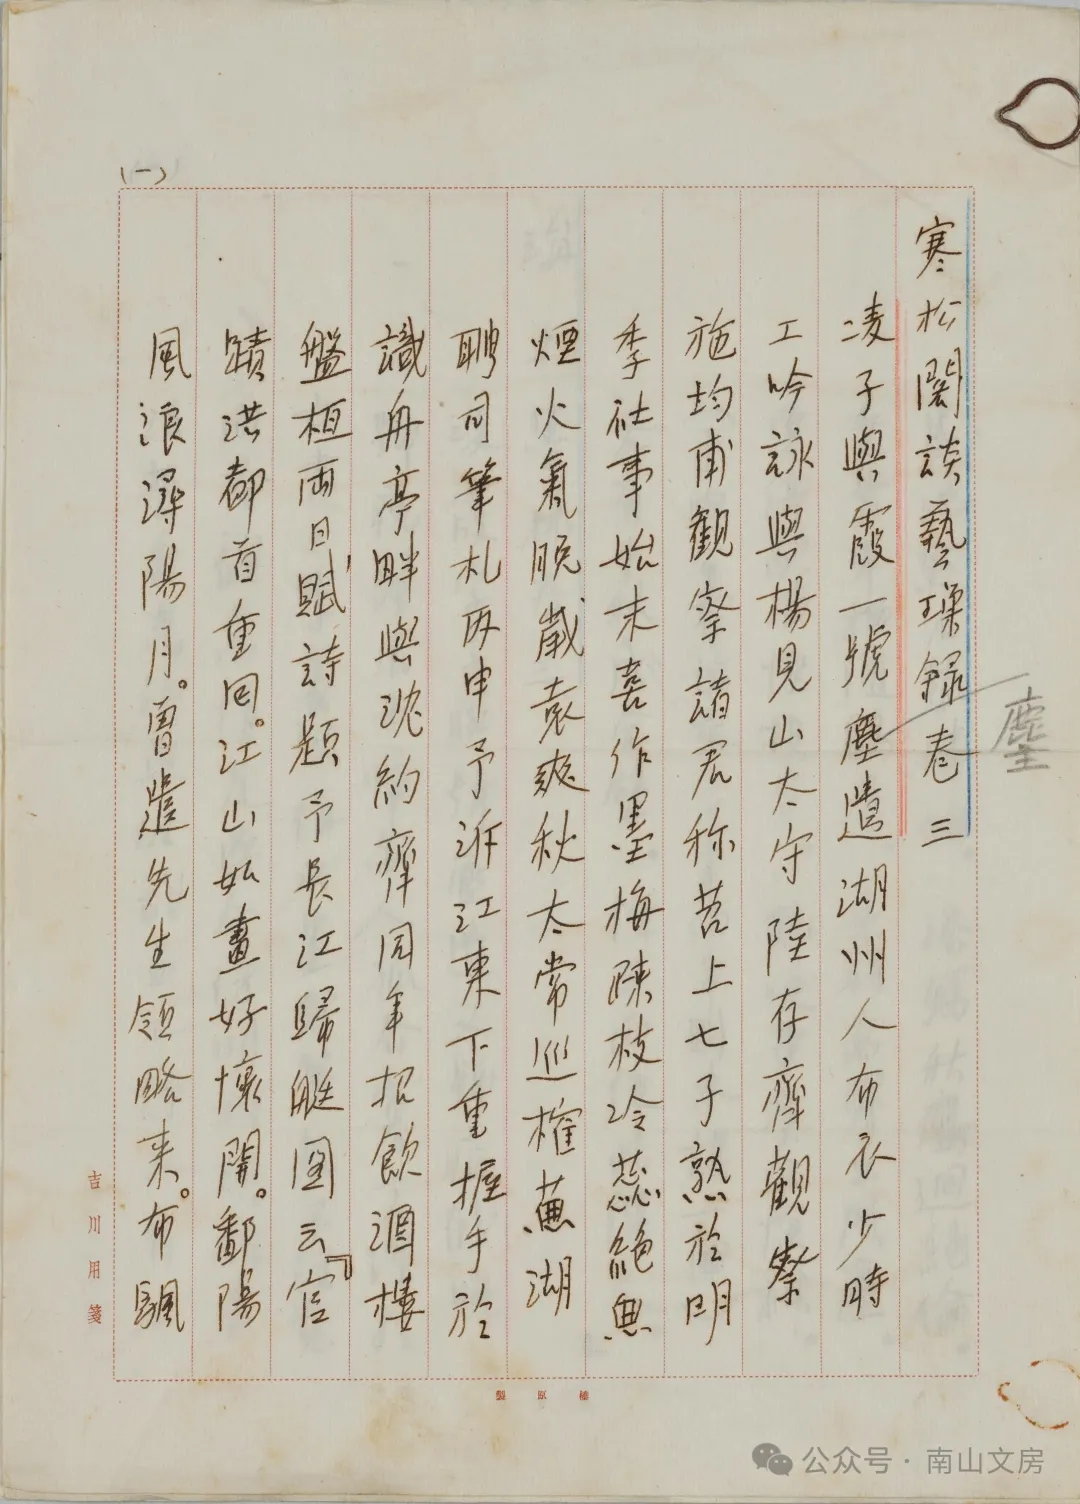 (一)
寒松閣談藝璅錄卷三
塵
凌子與霞一號塵遺湖州人布衣少時
工吟詠與楊見山太守陸存齋觀察
施均甫觀察諸君称苕上七子熟於明
季社事始末喜作墨梅疎枝冷蕊絕無
煙火氣晚歲袁爽秋太常巡榷蕪湖
聘司筆札丙申予泝江東下重握手於
識舟亭畔與沈約齋同年招飲酒樓
盤桓兩日賦詩題予長江歸艇圖云『官
蹟洪都首重回。江山如畫好懷開。鄱陽
風浪潯陽月。曾遣先生領略来。布颿
吉川用箋
榛原製
公众号·南山文房